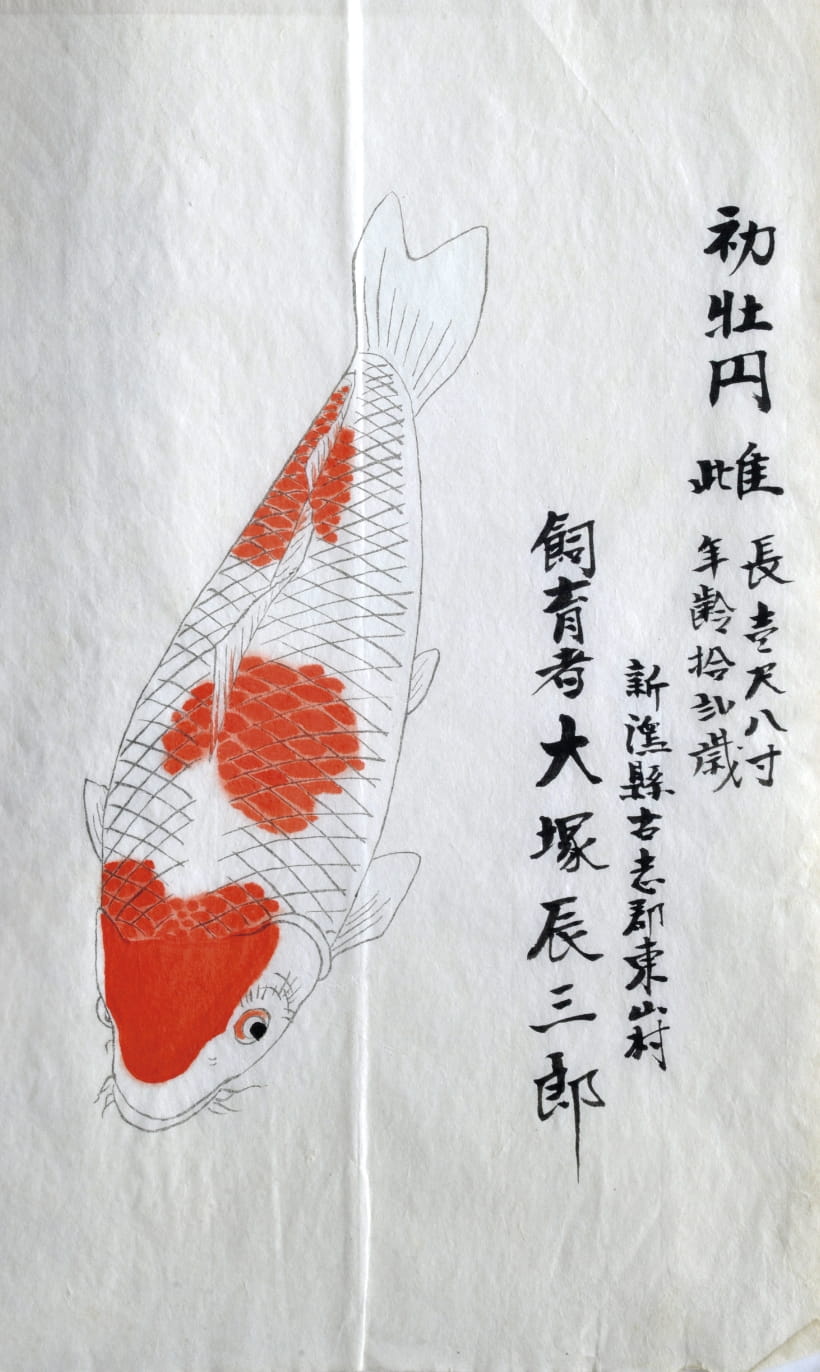 初牡円 雌
長壱尺八寸
年齢拾弐歳
新潟縣古志郡東山村
飼育者大塚辰三郎